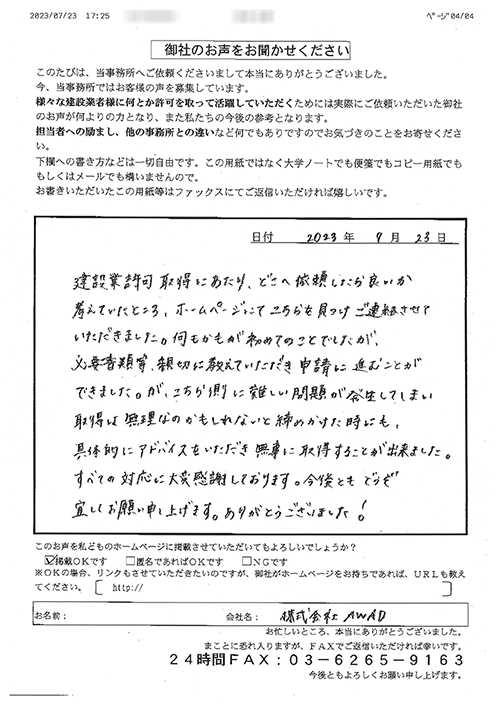 2023/07/23 17:25 ﾍﾟｰｼﾞ 04/04
御社のお声をお聞かせください
このたびは、当事務所へご依頼くださいまして本当にありがとうございました。
今、当事務所ではお客様の声を募集しています。
様々な建設業者様に何とか許可を取って活躍していただくためには実際にご依頼いただいた御社
のお声が何よりの力となり、また私たちの今後の参考となります。
担当者への励まし、他の事務所との違いなど何でもありですのでお気づきのことをお寄せくださ
い。
下欄への書き方などは一切自由です。この用紙ではなく大学ノートでも便箋でもコピー用紙でも
もしくはメールでも構いませんので。
お書きいただいたこの用紙等はファックスにてご返信いただければ嬉しいです。
日付 2023 年 7 月 23 日
建設業許可取得にあたり、どこへ依頼したら良いか
考えていたところ、ホームページにてこちらを見つけご連絡させて
いただきました。何もかもが初めてのことでしたが、
必要書類等、親切に教えていただき申請に進むことが
できました。が、こちら側に難しい問題が発生してしまい
取得は無理なのかもしれないと締めかけた時にも、
具体的にアドバイスをいただき無事に取得することが出来ました。
すべての対応に大変感謝しております。今後とも どうぞ
宜しくお願い申し上げます。ありがとうございました！
このお声を私どものホームページに掲載させていただいてもよろしいでしょうか？
☑掲載ＯＫです □匿名であればＯＫです □ＮＧです
※ＯＫの場合、リンクもさせていただきたいのですが、御社がホームページをお持ちであれば、ＵＲＬも教え
てください。〔 http:// 〕
お名前： 会社名： 株式会社 AWAD
お忙しいところ、本当にありがとうございました。
まことに恐れ入りますが、ＦＡＸでご返信いただければ幸いです。
２４時間ＦＡＸ：０３−６２６５−９１６３
今後ともよろしくお願い申し上げます。